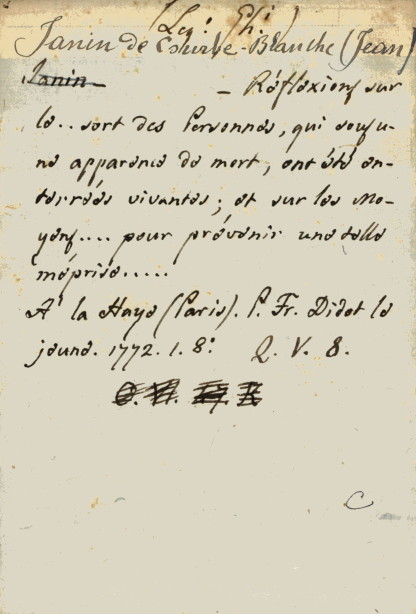 Janin de Combe-Blanche (Jean)
Janin
— Réflexions sur
le.. sort des Personnes, qui sous u-
ne apparence de mort, ont été en-
terrées vivantes; et sur les Mo-
yens.... pour prévenir une telle
méprise.....
A la Haye (Paris). P. Fr. Didot le
jeune. 1772. 1. 8.º Q. V. 8.
C